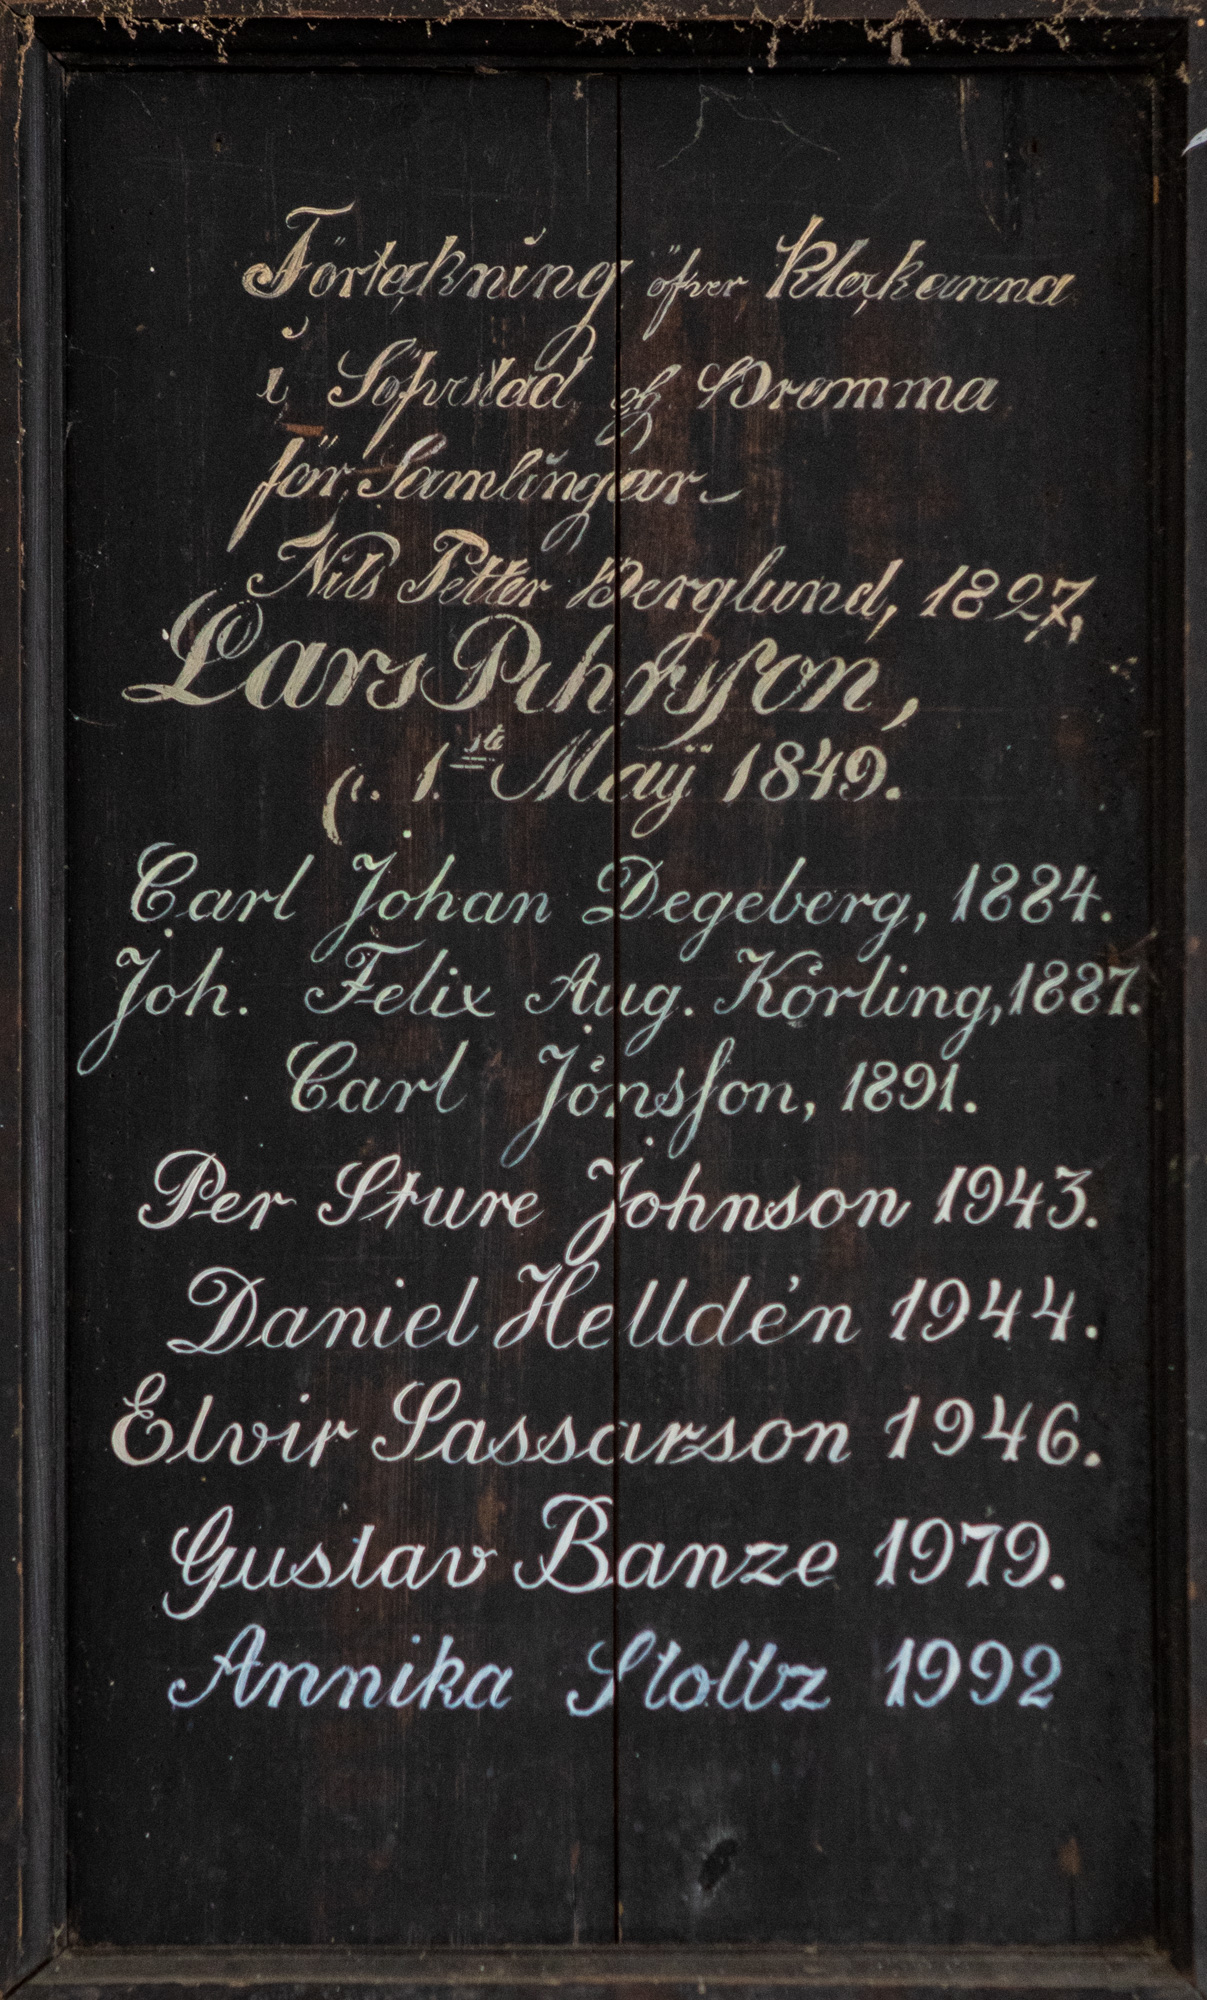 Förteckning öfver Klockarna
i Söfvestad och Bromma
för Samlingar
Nils Petter Berglund, 1827,
Lars Pehrsson,
1.ste Maÿ 1849.
Carl Johan Degeberg, 1884.
Joh. Felix Aug. Körling, 1887.
Carl Jönsson, 1891.
Per Sture Johnson 1943.
Daniel Helldén 1944.
Elvir Sassarson 1946.
Gustav Banze 1979.
Annika Stoltz 1992